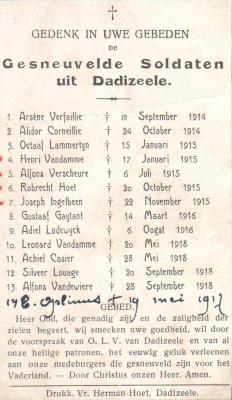 †
GEDENK IN UWE GEBEDEN
DE
Gesneuvelde Soldaten
uit Dadizeele.
1. Arsène Verfaillie † in September 1914
2. Alidor Corneillie † 24 October 1914
3. Octaaf Lammertyn † 15 Januari 1915
4. Henri Vandamme † 17 Januari 1915
5. Alfons Verscheure † 6 Juli 1915
6. Robrecht Hoet † 20 October 1915
7. Joseph Ingelbeen † 22 November 1915
8. Gustaaf Gaytant † 14 Maart 1916
9. Adiel Lodewyck † 6 Oogst 1916
10. Leonard Vandamme † 20 Mei 1918
11. Achiel Casier † 28 Mei 1918
12. Silveer Louage † 20 September 1918
13. Alfons Vandewiere † 28 September 1918
† 19 mei 1917
GEBED.
Heer God, die genadig zijt en de zaligheid der
zielen begeert, wij smeeken uwe goedheid, wil door
de voorspraak van O. L. V. van Dadizeele en van al
onze heilige patronen, het eeuwig geluk verleenen
aan onze medeburgers die gesneuveld zijn voor het
Vaderland. — Door Christus onzen Heer. Amen.
Drukk. Vr. Herman-Hoet, Dadizeele.